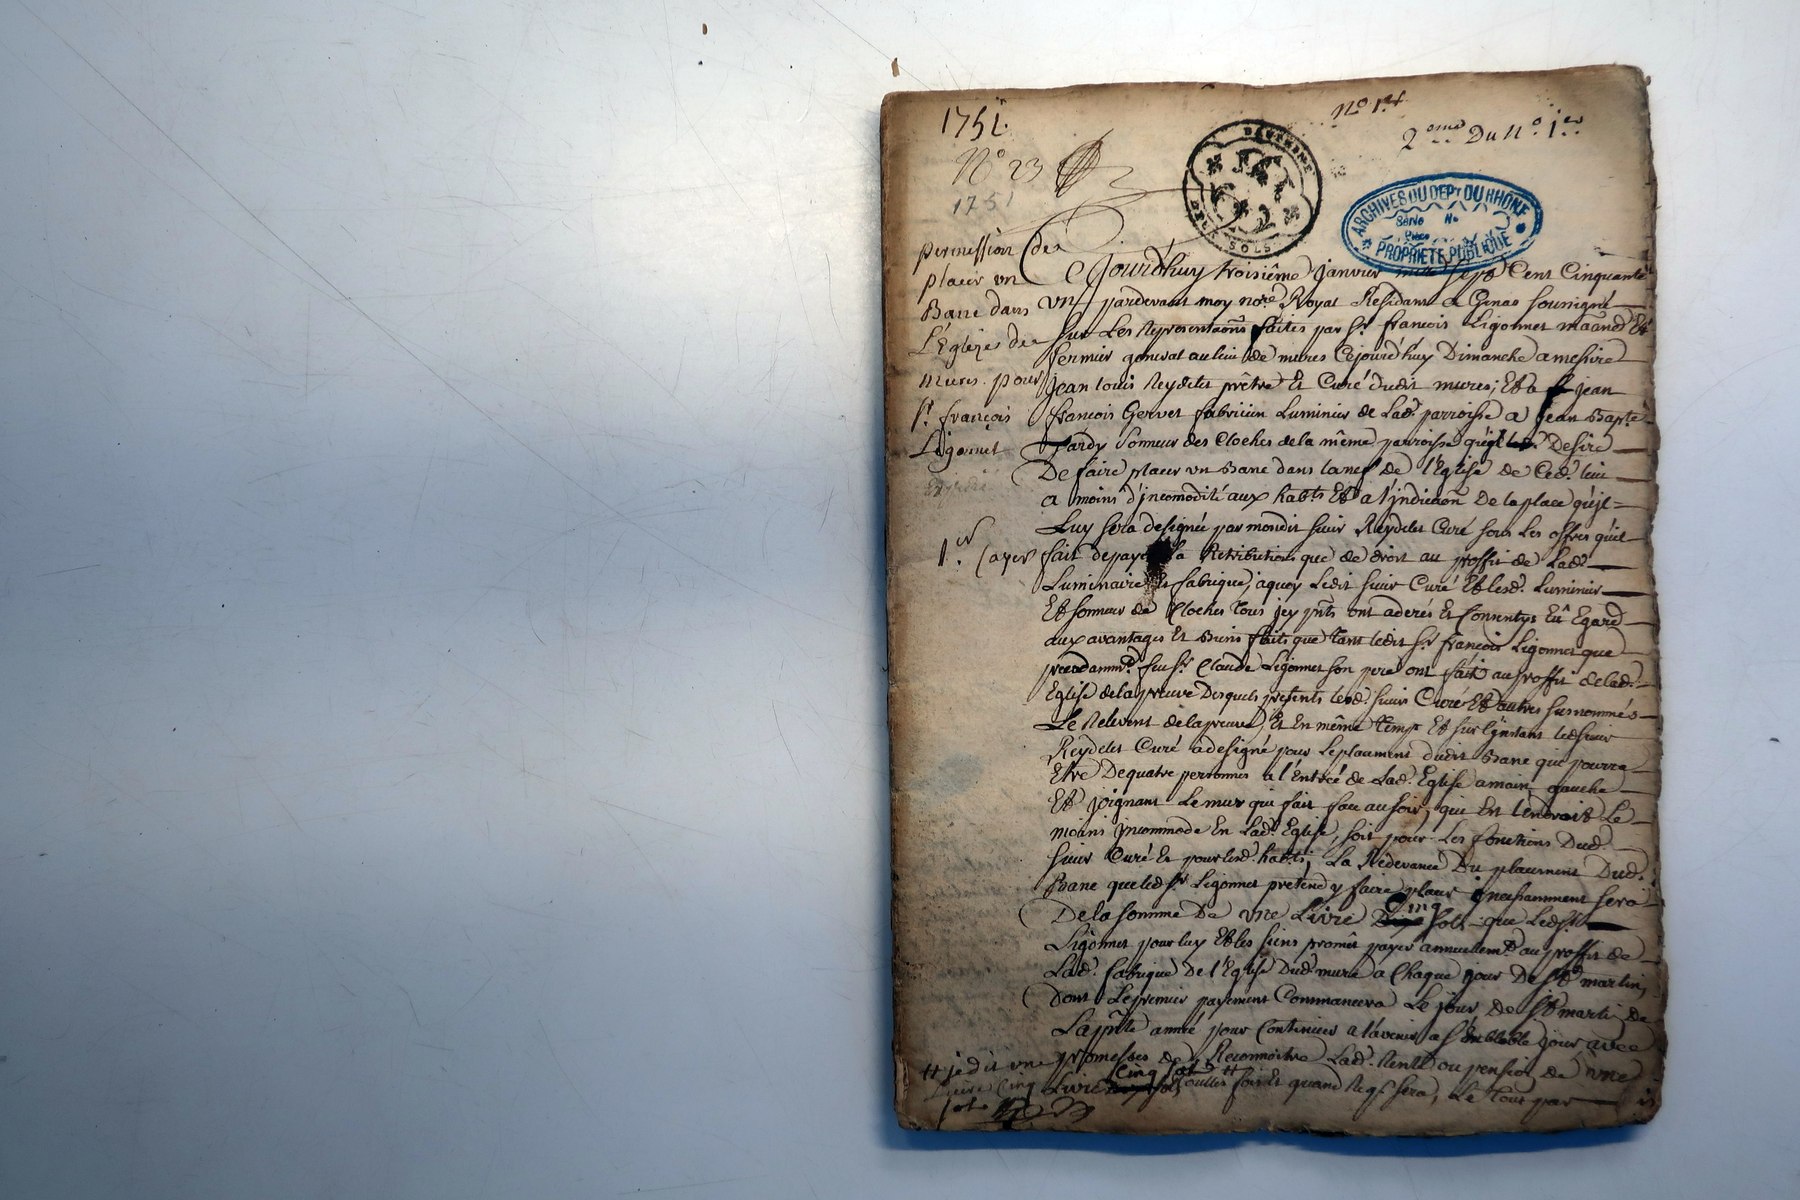 1751.
No 1er
2eme Du No 1er
No 23
1751
DAUPHINE
DEUX SOLS
ARCHIVES DU DEPT DU RHÔNE
Série No
Pièce
PROPRIÉTÉ PUBLIQUE
permission de
placer un
Banc dans
L'Eglize de
Mures pour
Sr. françois
Ligonnet
1er (ayer
Cejourdhuy troisiême janvier mil sept Cent Cinquante
un pardevant moy nore. Royal Residant a Genas soussigné
sur Les Representaons faites par Sr. françois Ligonnet marnd Et
fermier general au lieu de mures Cejourdhuy Dimanche a messire
jean louis Reydelet prêtre Et Curé dudit mures; Et a jean
françois Gervet fabricien Luminier de Lad. parroisse a jean Bapte.
Tardy sonneur des Cloches de la même parroisse qu'il Desire
De faire placer un Banc dans la nef de l'Eglise de Ced. lieu
a moins d'jncomodité aux habts Et a l'jndicaon De la place qu'il
Luy sera designée par mondit sieur Reydelet Curé sous Les offres qu'il
fait depayer la Retribution que de droit au proffit de Lad.
Luminaire Et fabrique, aquoy Ledit sieur Curé Et lesd. Luminier
Et sonneur de Cloches tous jcy pnts ont aderés Et Consentys Eû Egard
aux avantages Et Biens faits que tant ledit Sr. françois Ligonnet que
precedamm.t feu Sr. Claude Ligonnet son pere ont fait au proffit de lad.
Eglise de la preuve Desquels presents lesd. sieur Curé Et autres surnommés
Le Relevent de la preuve, Et En même temp Et sur l'jnstant led sieur
Reydelet Curé a designé pour Le placement dudit Banc qui pourra
Etre De quatre personnes a l'Entrée de Lad. Eglise a main gauche
Et joignant Le mur qui fait face au soir, qui Est l'endroit Le
moins jncommode En Lad. Eglise, soit pour Les fonctions Dud.
sieur Curé Et pour lesd. habts; La Redevance Du placement Dud.
Banc que led Sr. Ligonnet prétend y faire placer jncessamment sera
De la somme De une Livre Cinq sols que Led Sr.
Ligonnet pour luy Et les siens promêt payer annuellemt au proffit de
Lad. fabrique De l'Eglise Dud. mure a Chaque jour De St martin,
Dont Le premier payement Commancera Le jour de St martin de
La pnte année pour Continuer a l'avenir a semblable jour avec
promesses de Reconnoitre Lad. Rente ou pension de une
Livre Cinq sols # touttes fois Et quand Req. sera, Le tout par
# je dit une
Livre Cinq
sols